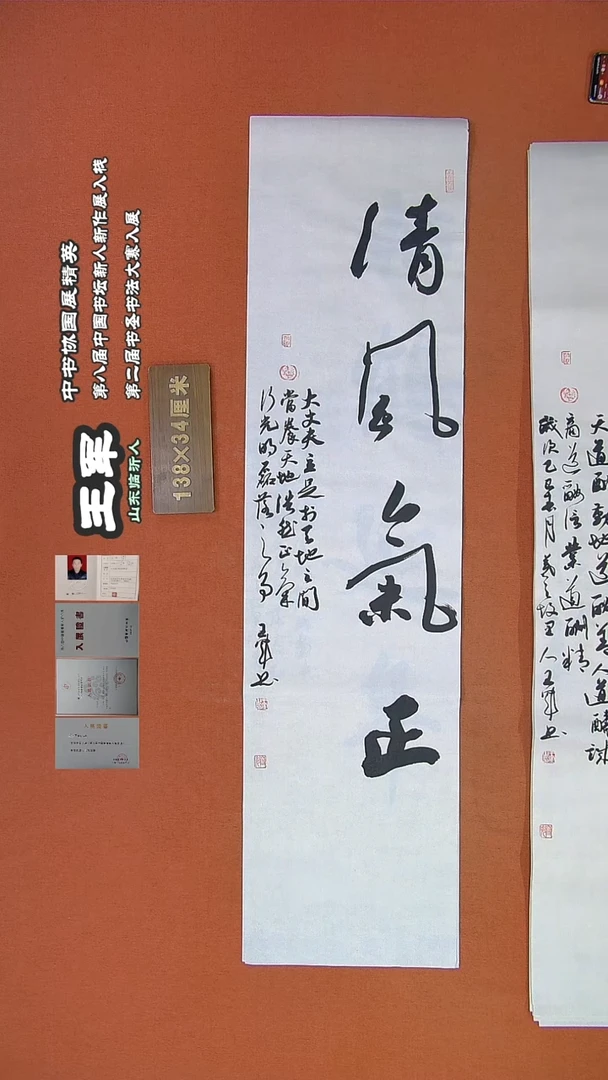 中书协国展精英
第八届中国书坛新人新作展入展
第二届书圣书法大赛入展
王军
山东临沂人
138×34厘米
入展证书
清风氣正
大丈夫立足於天地之间
當养天地浩然正氣
行光明磊落之事
王军书
天道酬勤地道酬善人道酬诚
商道酬信業道酬精
歲次乙巳春月義之故里人王军书